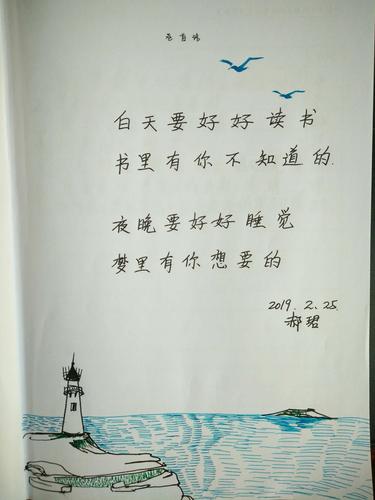 白天要好好读书
书里有你不知道的.
夜晚要好好睡觉
梦里有你想要的
2019.2.25.
郝珺